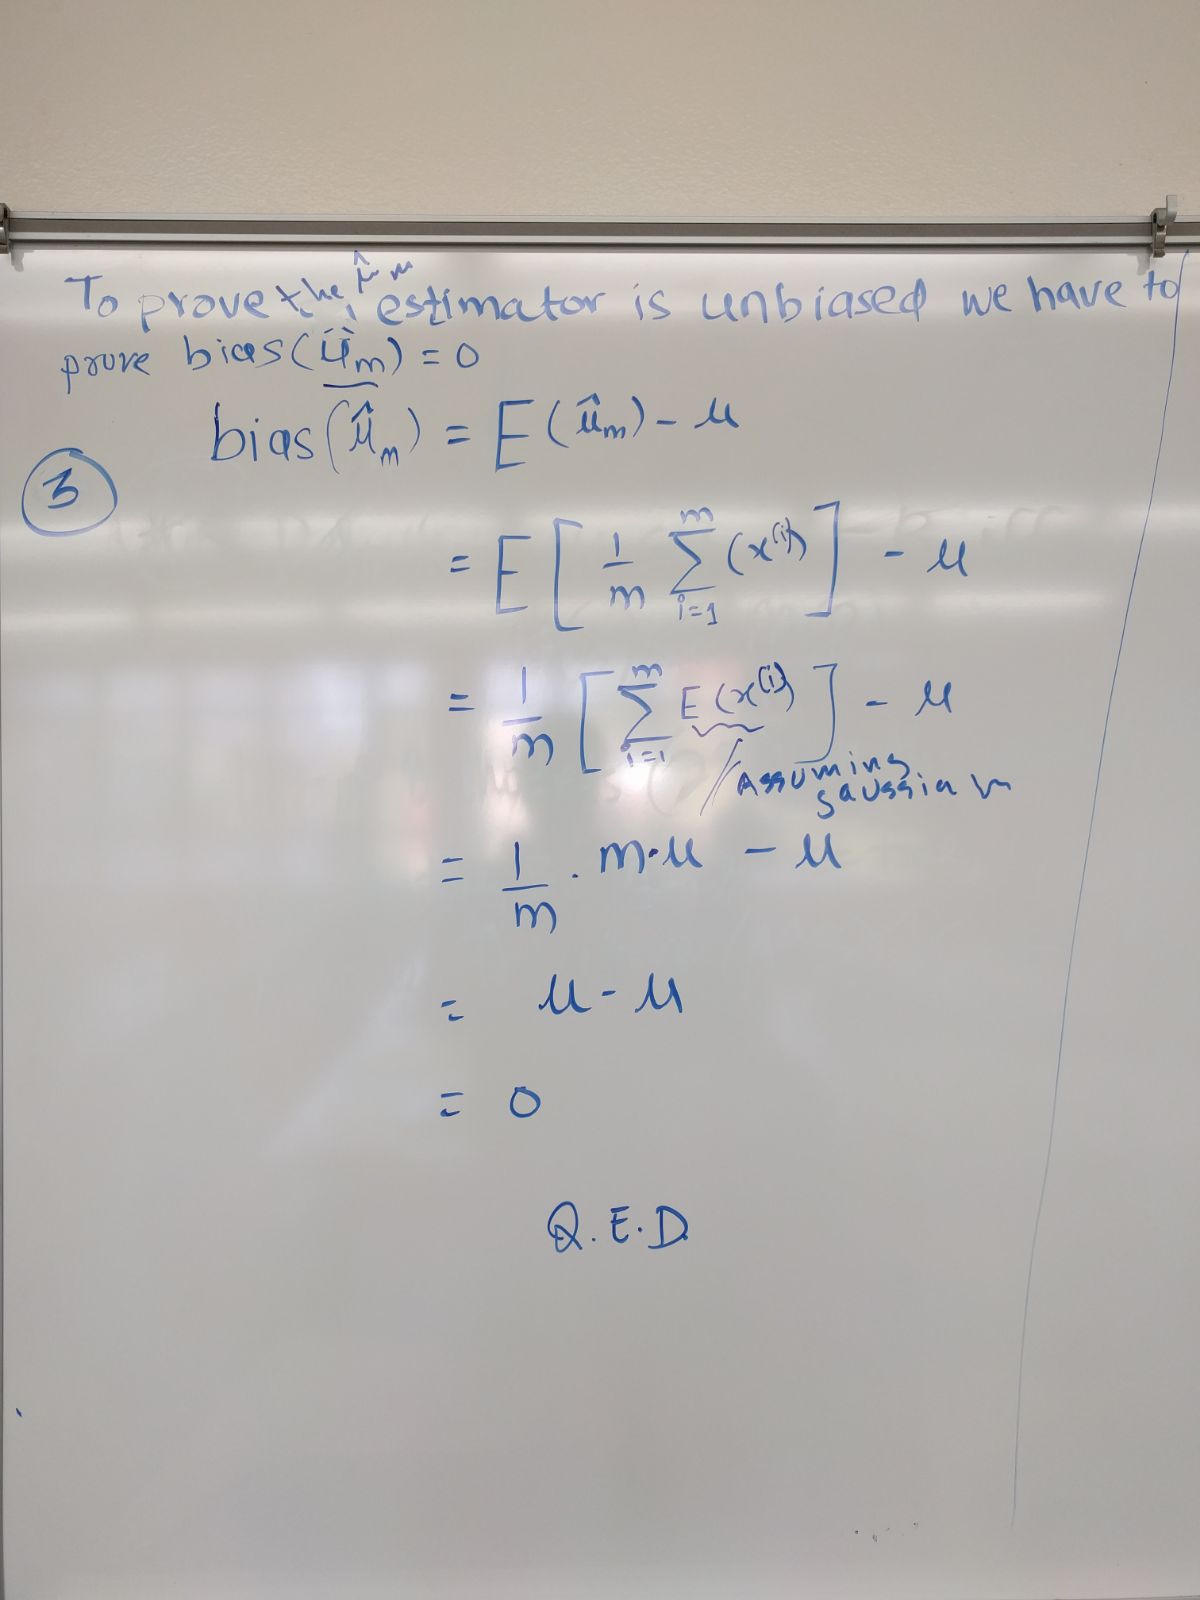 To prove the μ̂m estimator is unbiased we have to
prove bias(μ̂m) = 0
bias(μ̂m) = E(μ̂m) - μ
3
= E[1/m ∑_{i=1}^{m} (x^(i))] - μ
= 1/m [∑_{i=1}^{m} E(x^(i))] - μ
Assuming
gaussian
= 1/m . m·μ - μ
= μ - μ
= 0
Q.E.D.